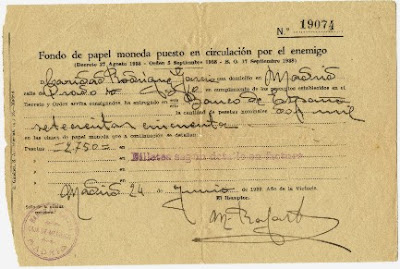 N.º 19074
Fondo de papel moneda puesto en circulación por el enemigo
(Decreto 27 Agosto 1938 - Orden 5 Septiembre 1938 - B. O. 17 Septiembre 1938)
Caridad Rodriguez Garcia con domicilio en Madrid
calle de Prado 10 en cumplimiento de los preceptos establecidos en el
Decreto y Orden arriba consignados, ha entregado en Banco de España
la cantidad de pesetas nominales dos mil
setecientas cincuenta
en las clases de papel moneda que a continuación se detallan:
Pesetas =2.750=
Billetes según detalle en factura
Madrid 24 de Junio de 1939 Año de la Victoria.
El Receptor,
MADRID